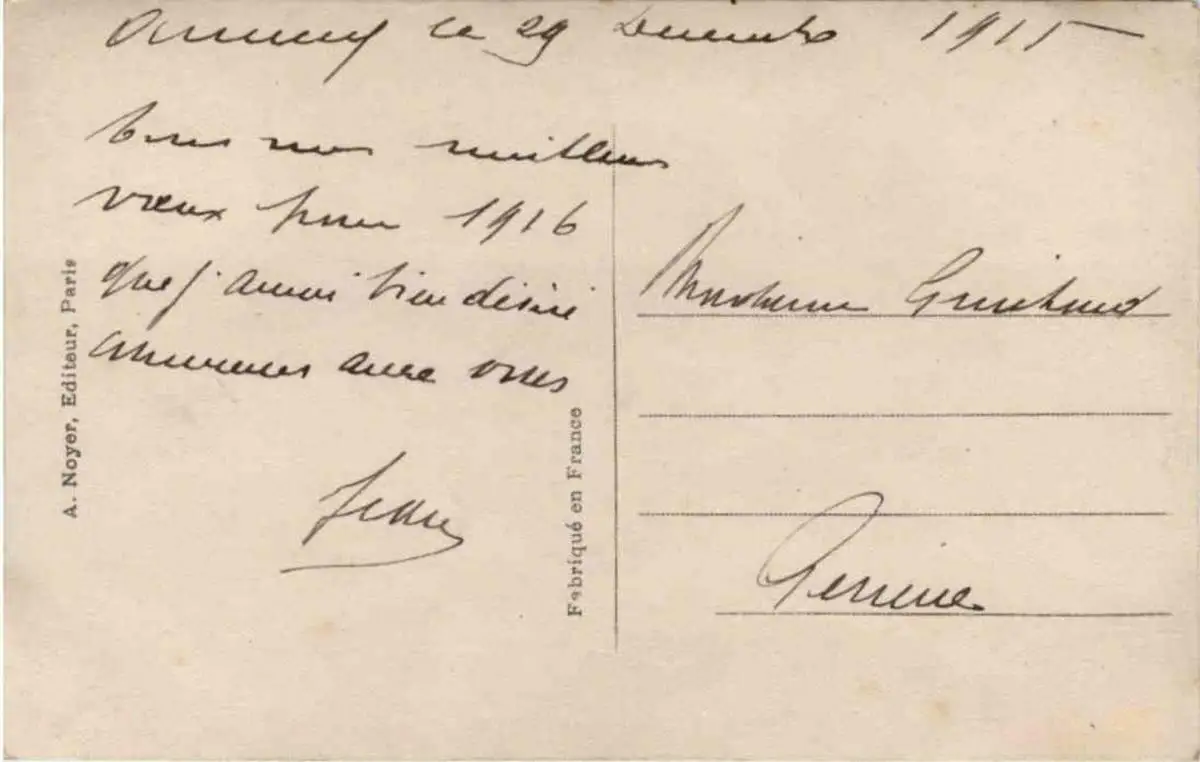 Annecy le 29 Decembre 1915
tous nos meilleurs
vœux pour 1916
que j'aurai bien désiré
avec vous
Jean
A. Noyer, Editeur, Paris
Fabriqué en France